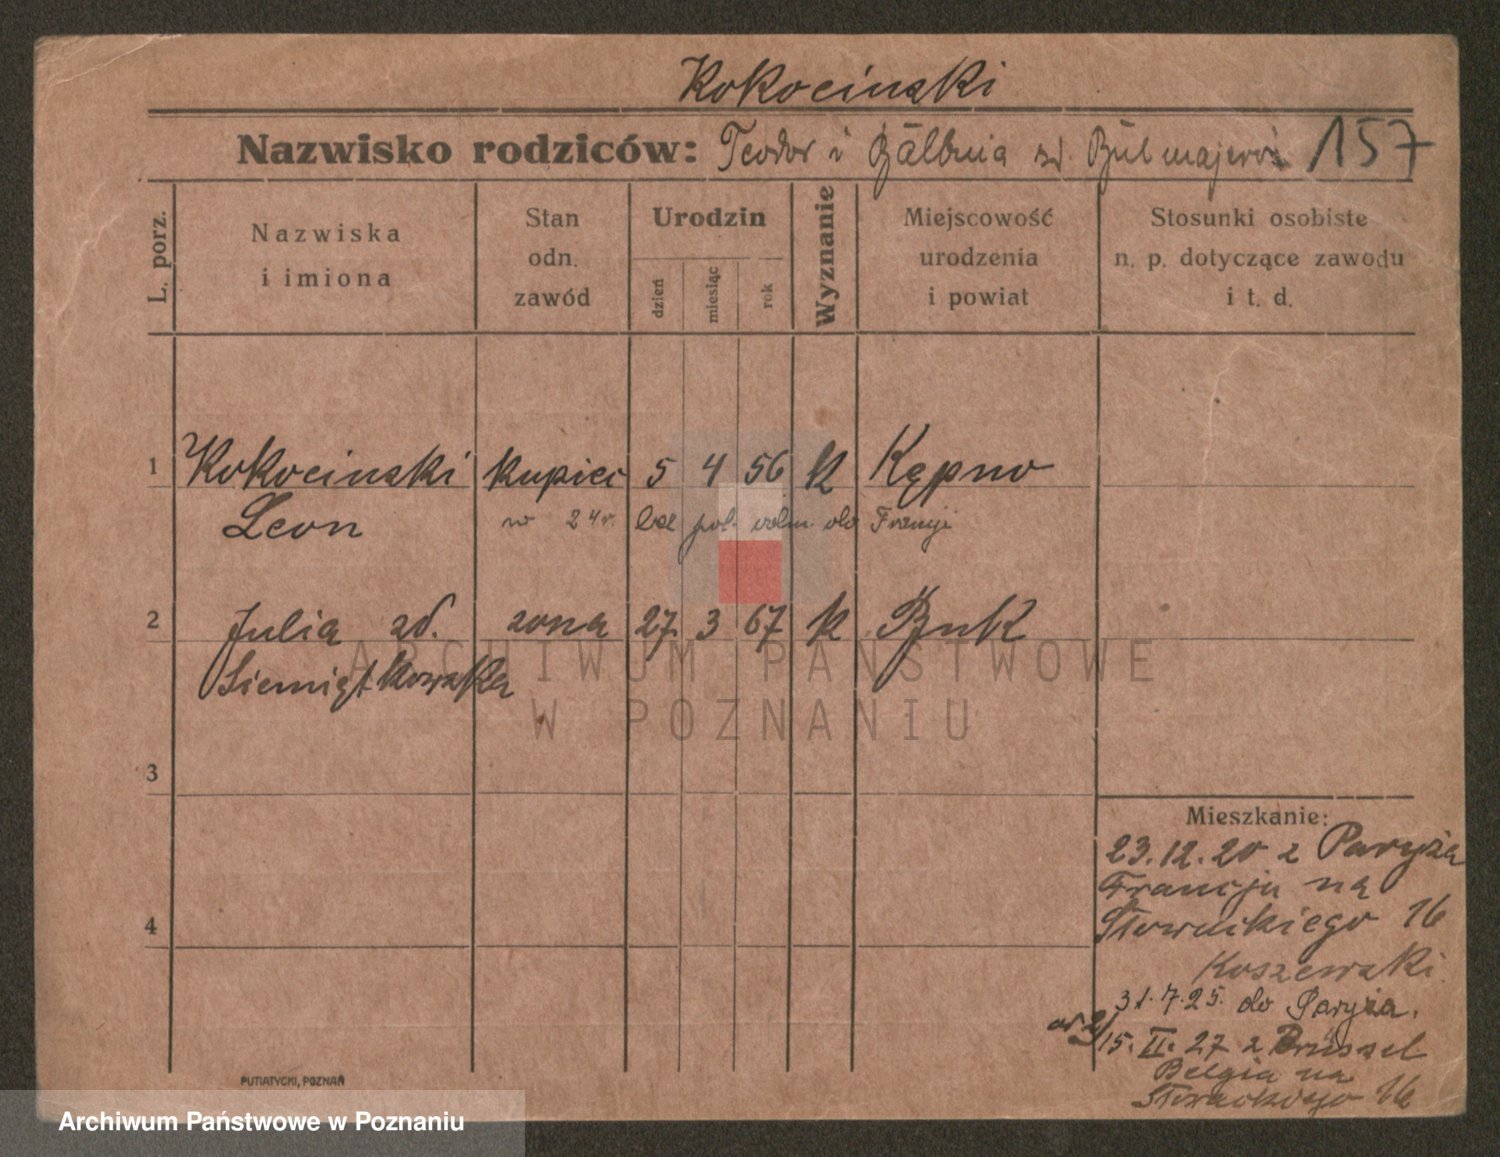 Kokocinski
Nazwisko rodziców: Teodor i Balbina zd. 157
L. porz.
Nazwiska
i imiona
Stan
odn.
zawód
Urodzin
dzień
miesiąc
rok
Wyznanie
Miejscowość
urodzenia
i powiat
Stosunki osobiste
n. p. dotyczące zawodu
i t. d.
1 Kokocinski kupiec 5 4 56 k Kępno
Leon w 24r. do Francji
2 Julia zd. zona 27 3 67 k Buk
Siemiątkowska
3
4
Mieszkanie:
23.12.20 z Paryża
Francja na
Słowackiego 16
Koszewski
31.7.25. do Paryża.
15. II. 27 z Brüssel
Belgia na
Słowackiego 16
PUTIATYCKI, POZNAŃ
ARCHIWUM PAŃSTWOWE
W POZNANIU
Archiwum Państwowe w Poznaniu